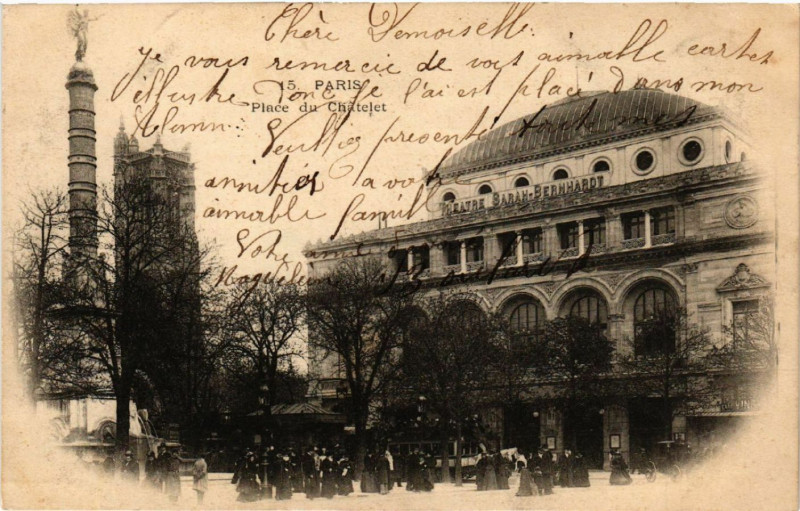 Chère Demoiselle.
Je vous remercie de votre aimable carte
illustre Donc Je l'ai est placé dans mon
15. PARIS
Place du Châtelet
Albumn. Veuillez presenter tout mes
amitiés a votre
aimable famille
Votre amie
Magdeleine
THÉATRE SARAH-BERNHARDT